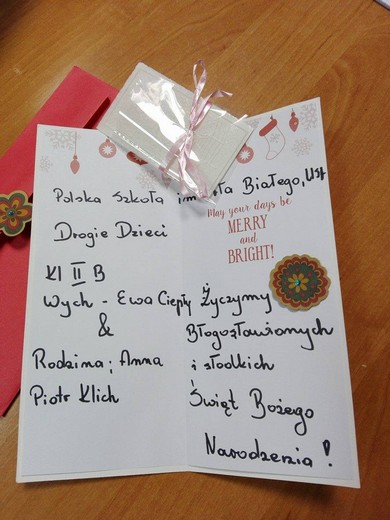 Polska Szkoła im Białego, USA
Drogie Dzieci
Kl II B
Wych - Ewa Ciepły
&
Rodzina; Anna
Piotr Klich
May your days be
MERRY
and
BRIGHT!
Życzymy
Błogosławionych
i słodkich
Świąt Bożego
Narodzenia !